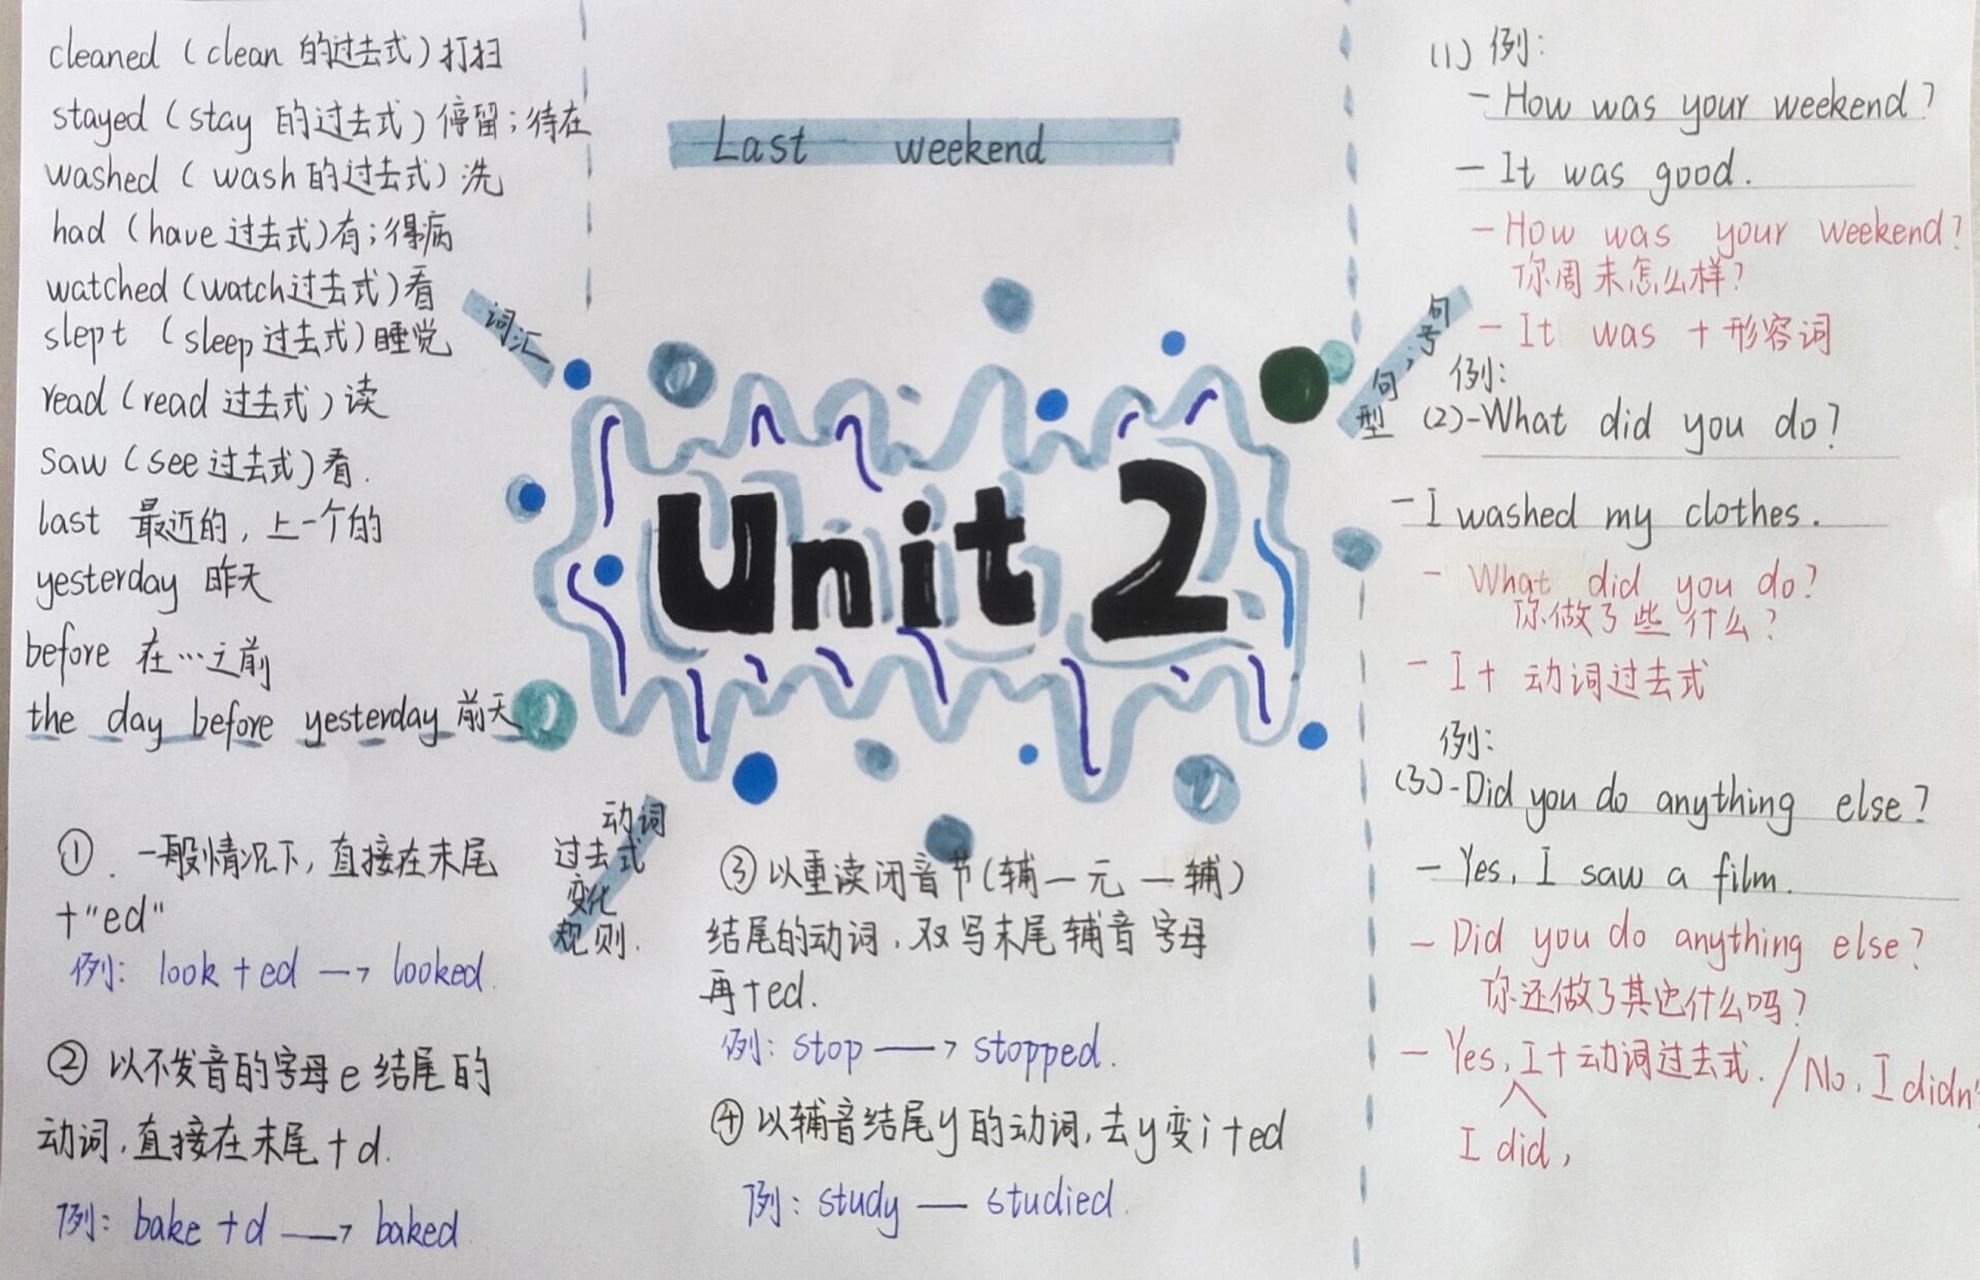 cleaned (clean 的过去式) 打扫
stayed (stay 的过去式) 停留；待在
washed (wash 的过去式) 洗
had (have 过去式) 有；得病
watched (watch过去式) 看
slept (sleep 过去式) 睡觉
read (read 过去式) 读
saw (see 过去式) 看.
last 最近的，上一个的
yesterday 昨天
before 在…之前
the day before yesterday 前天
词汇
Last weekend
Unit 2
动词
过去式
变化
规则.
①. 一般情况下，直接在末尾
+"ed"
例: look + ed → looked.
② 以不发音的字母e结尾的
动词，直接在末尾 + d.
例: bake + d → baked
③ 以重读闭音节(辅一元一辅)
结尾的动词，双写末尾辅音字母
再+ed.
例: stop → stopped.
④ 以辅音结尾y的动词，去y变i+ed
例: study — studied.
句号，句型
(1) 例:
- How was your weekend?
- It was good.
- How was your weekend?
你周末怎么样？
- It was + 形容词
例:
(2)-What did you do?
- I washed my clothes.
- What did you do?
你做了些什么？
- I + 动词过去式
例:
(3)-Did you do anything else?
- Yes, I saw a film.
- Did you do anything else?
你还做了其它什么吗？
- Yes, I + 动词过去式. / No, I didn'
I did,